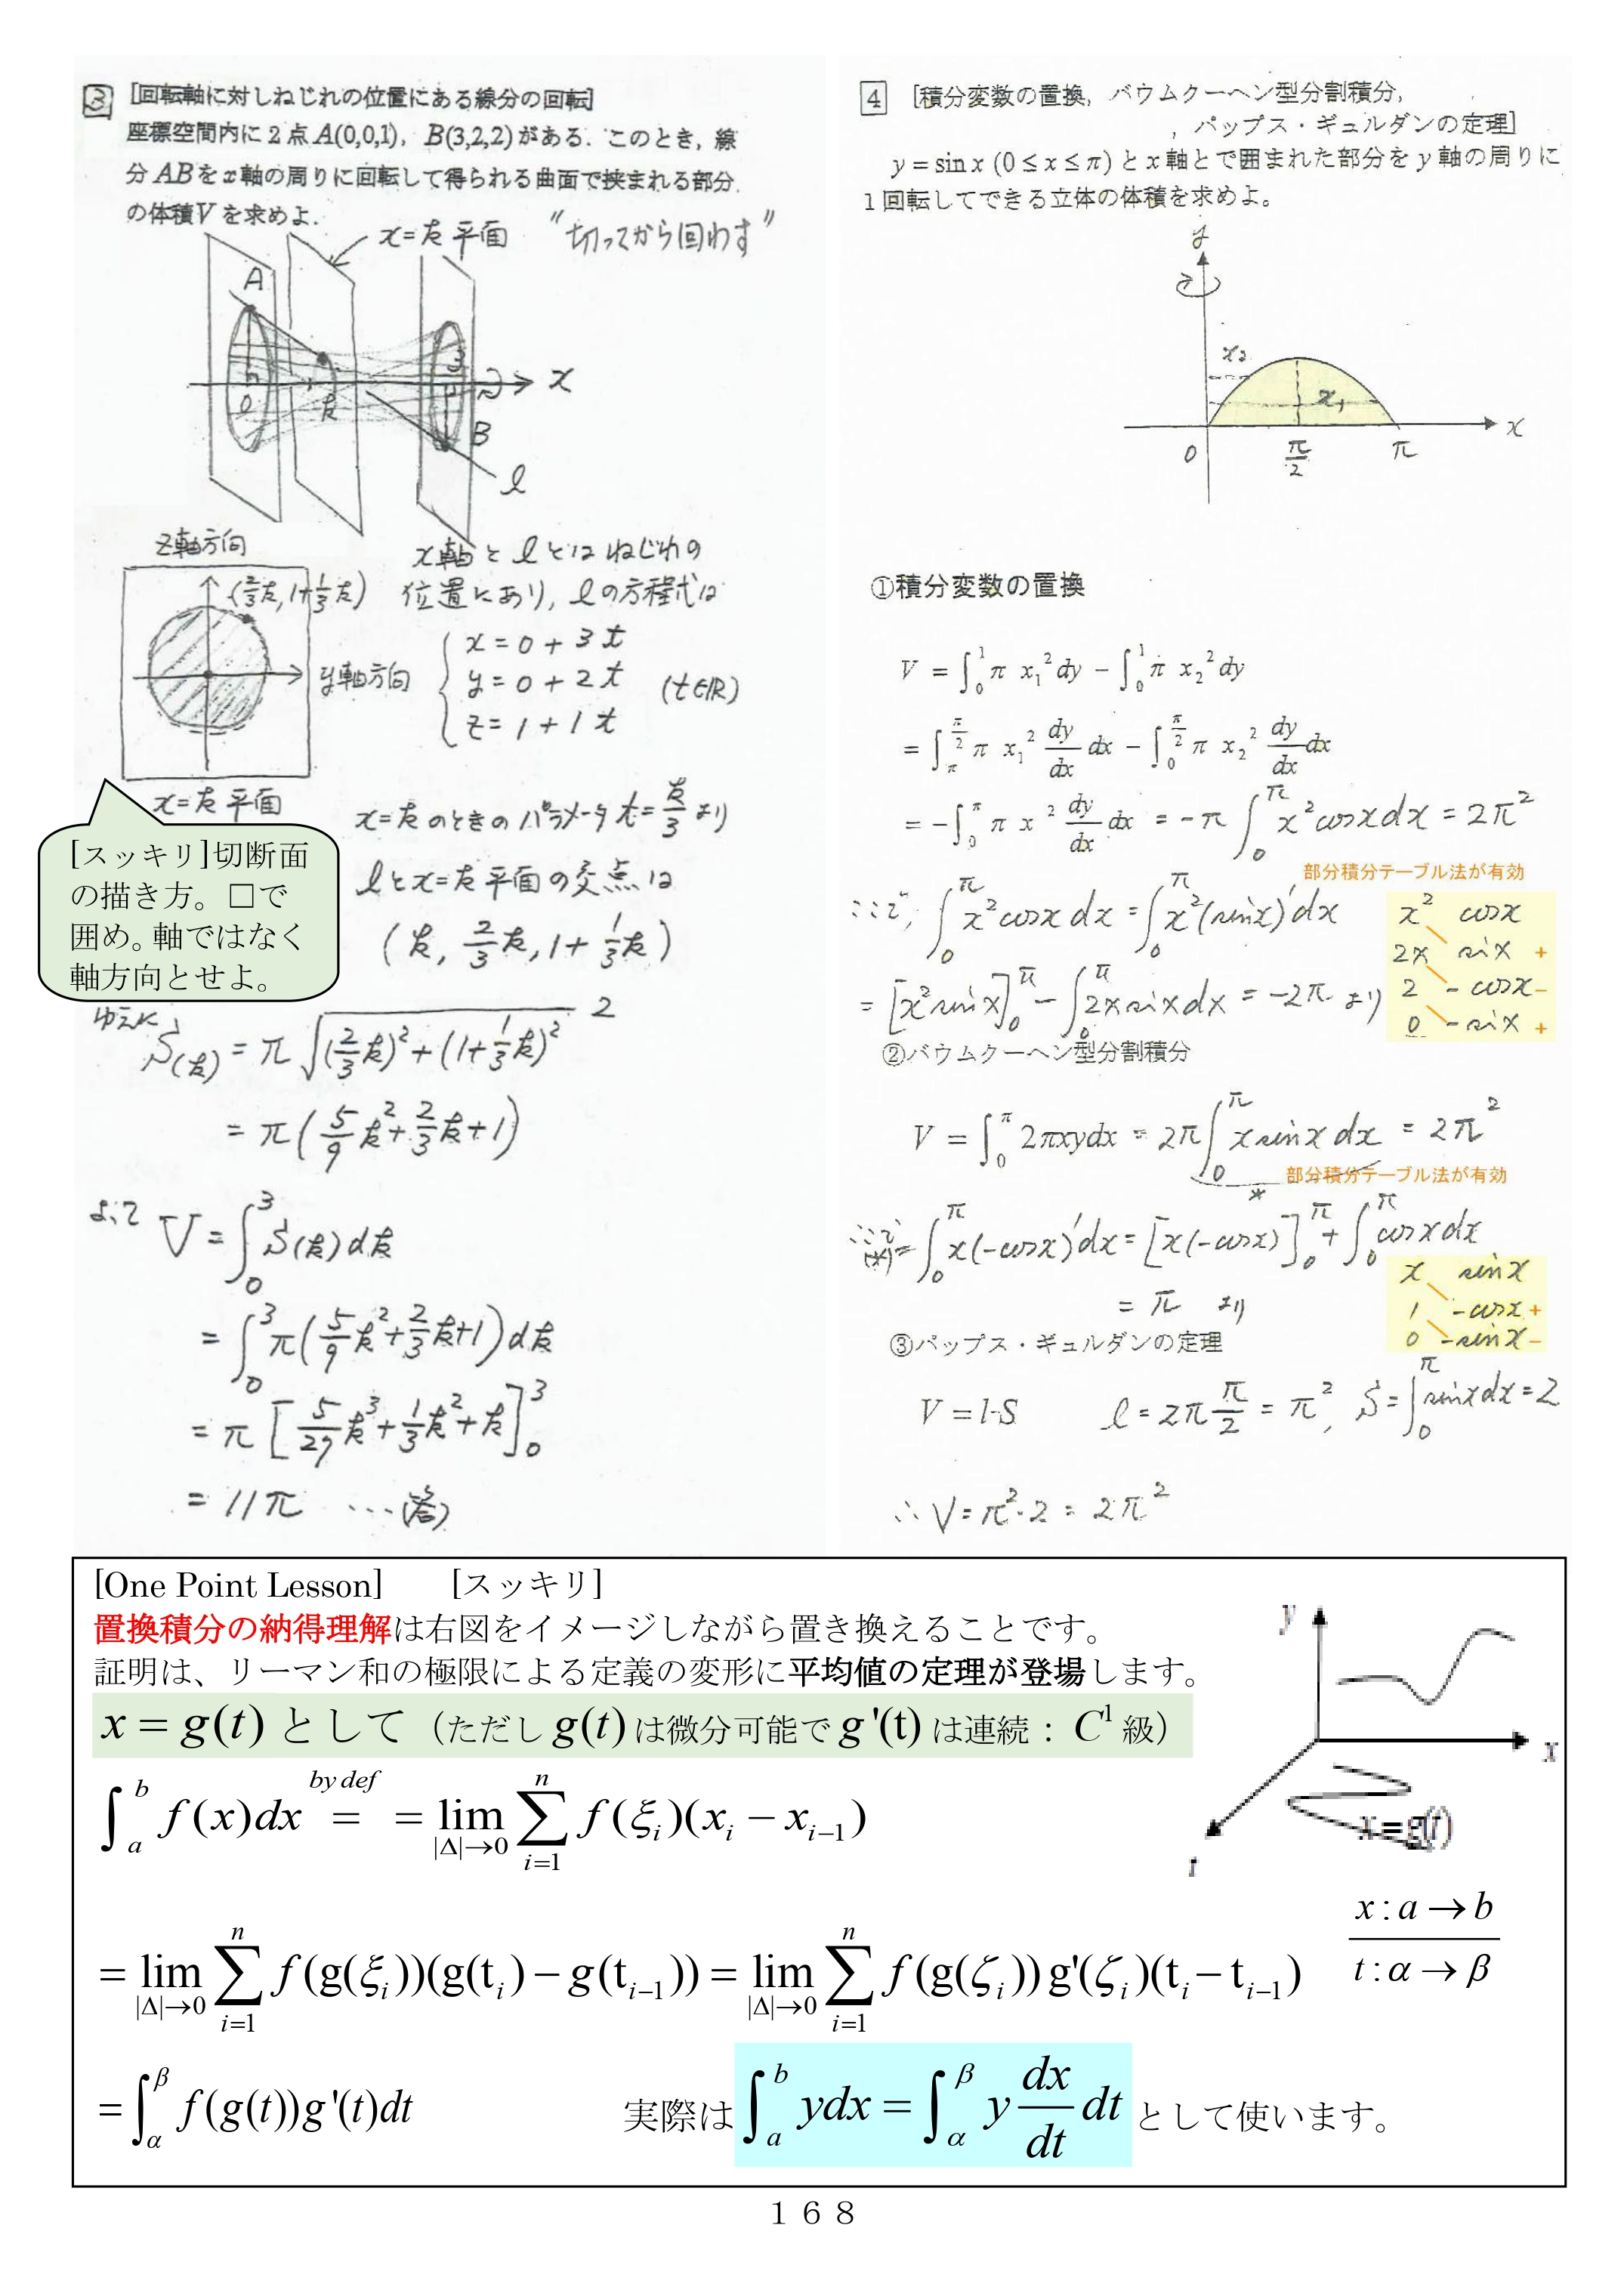 3 [回転軸に対しねじれの位置にある線分の回転]
座標空間内に2点A(0,0,1), B(3,2,2)がある. このとき, 線
分ABをx軸の周りに回転して得られる曲面で挟まれる部分
の体積Vを求めよ.
x=k平面 “切ってから回わす”
A
x
O
k
3
B
l
z軸方向
(2/3k, 1+1/3k)
y軸方向
x=k平面
x軸とlとはねじれの
位置にあり, lの方程式は
x=0+3t
y=0+2t (t∈R)
z=1+1t
x=kのときのパラメータt=k/3より
lとx=k平面の交点は
(k, 2/3k, 1+1/3k)
[スッキリ]切断面
の描き方。□で
囲め。軸ではなく
軸方向とせよ。
ゆえに
S(k) = π√((2/3k)²+(1+1/3k)²)²
= π(5/9k²+2/3k+1)
よって V=∫₀³S(k)dk
= ∫₀³π(5/9k²+2/3k+1)dk
= π[5/27k³+1/3k²+k]₀³
= 11π …(答)
4 [積分変数の置換, バウムクーヘン型分割積分,
, パップス・ギュルダンの定理]
y=sin x (0≤x≤π)とx軸とで囲まれた部分をy軸の周りに
1回転してできる立体の体積を求めよ。
y
x₂
x₁
0 π/2 π x
①積分変数の置換
V = ∫₀¹π x₁²dy − ∫₀¹π x₂²dy
= ∫_π^{π/2} π x₁² dy/dx dx − ∫₀^{π/2} π x₂² dy/dx dx
= −∫₀^π π x² dy/dx dx = −π∫₀^π x²cosxdx = 2π²
部分積分テーブル法が有効
ここで, ∫₀^π x²cosx dx = ∫₀^π x²(sinx)'dx
= [x²sinx]₀^π − ∫₀^π 2xsinxdx = −2π より
x² cosx
2x sinx +
2 −cosx −
0 −sinx +
②バウムクーヘン型分割積分
V = ∫₀^π 2πxydx = 2π∫₀^π xsinx dx = 2π²
* 部分積分テーブル法が有効
ここで (*)= ∫₀^π x(−cosx)'dx = [x(−cosx)]₀^π + ∫₀^π cosxdx
= π より
x sinx
1 −cosx +
0 −sinx −
③パップス・ギュルダンの定理
V = l·S l = 2π π/2 = π², S=∫₀^π sinxdx=2
∴ V=π²·2 = 2π²
[One Point Lesson] [スッキリ]
置換積分の納得理解は右図をイメージしながら置き換えることです。
証明は、リーマン和の極限による定義の変形に平均値の定理が登場します。
x = g(t) として (ただし g(t) は微分可能で g'(t) は連続: C¹ 級)
y
x
x=g(t)
t
∫_a^b f(x)dx by def = = lim_{|Δ|→0} Σ_{i=1}^n f(ξ_i)(x_i − x_{i−1})
x : a → b
t : α → β
= lim_{|Δ|→0} Σ_{i=1}^n f(g(ξ_i))(g(t_i) − g(t_{i−1})) = lim_{|Δ|→0} Σ_{i=1}^n f(g(ζ_i))g'(ζ_i)(t_i − t_{i−1})
= ∫_α^β f(g(t))g'(t)dt 実際は ∫_a^b ydx = ∫_α^β y dx/dt dt として使います。
168